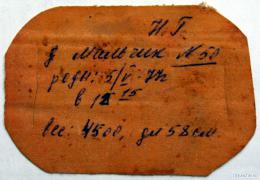 Н.Г.
д мальчик № 50
родил: 5/V-77г
в 12 15
вес: 4500, дл 58 см.